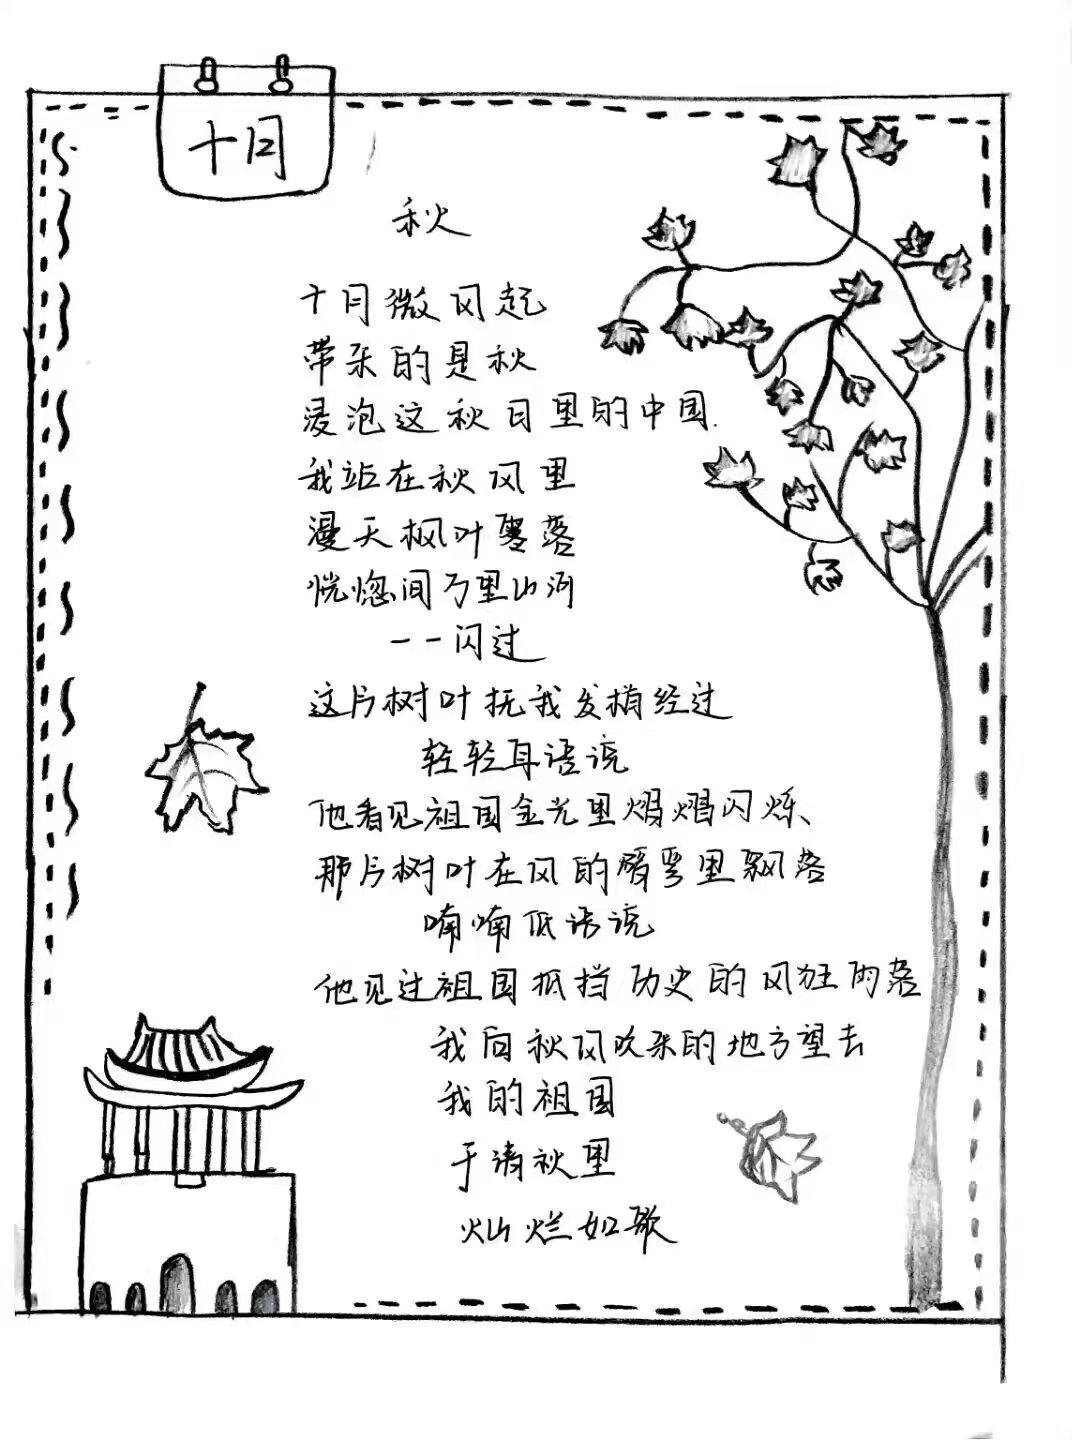 十月
秋
十月微风起
带来的是秋
浸泡这秋日里的中国.
我站在秋风里
漫天枫叶零落
恍惚间万里山河
一一闪过
这片树叶抚我发梢经过
轻轻耳语说
他看见祖国金光里熠熠闪烁、
那片树叶在风的臂弯里飘落
喃喃低语说
他见过祖国抵挡历史的风狂雨落
我向秋风吹来的地方望去
我的祖国
于清秋里
灿烂如歌